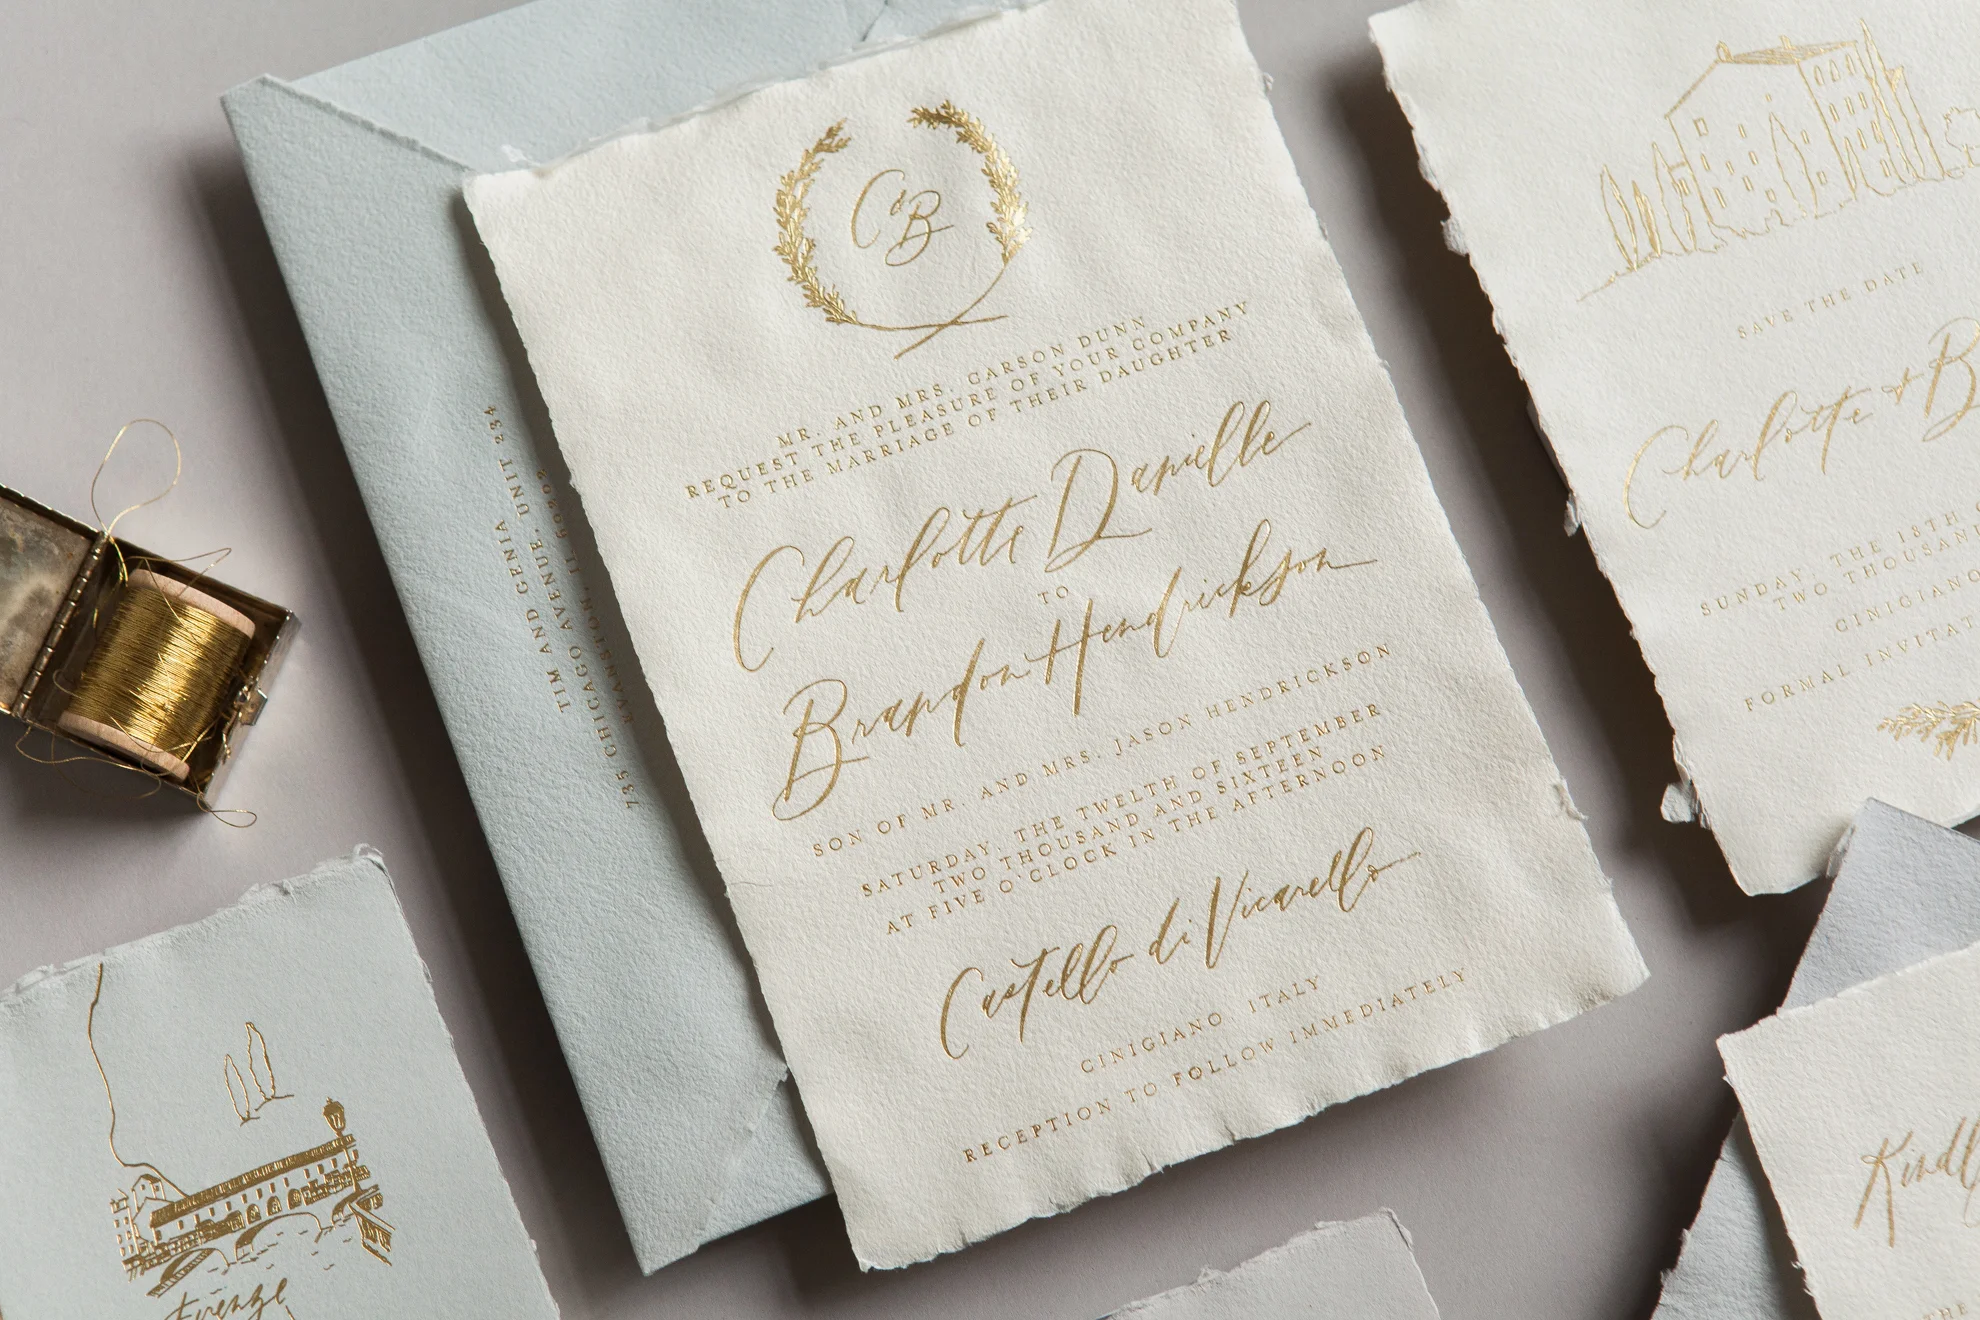 C & B
MR. AND MRS. CARSON DUNN
REQUEST THE PLEASURE OF YOUR COMPANY
TO THE MARRIAGE OF THEIR DAUGHTER
Charlotte Danielle
TO
Brandon Hendrickson
SON OF MR. AND MRS. JASON HENDRICKSON
SATURDAY, THE TWELTH OF SEPTEMBER
TWO THOUSAND AND SIXTEEN
AT FIVE O'CLOCK IN THE AFTERNOON
Castello di Vicarello
CINIGIANO, ITALY
RECEPTION TO FOLLOW IMMEDIATELY
TIM AND GENIA
735 CHICAGO AVENUE, UNIT 234
EVANSTON, IL 60202
SAVE THE DATE
Charlotte & B
SUNDAY, THE 18TH
TWO THOUSAN
CINIGIANO
FORMAL INVITAT
Kindl
THE
Firenze